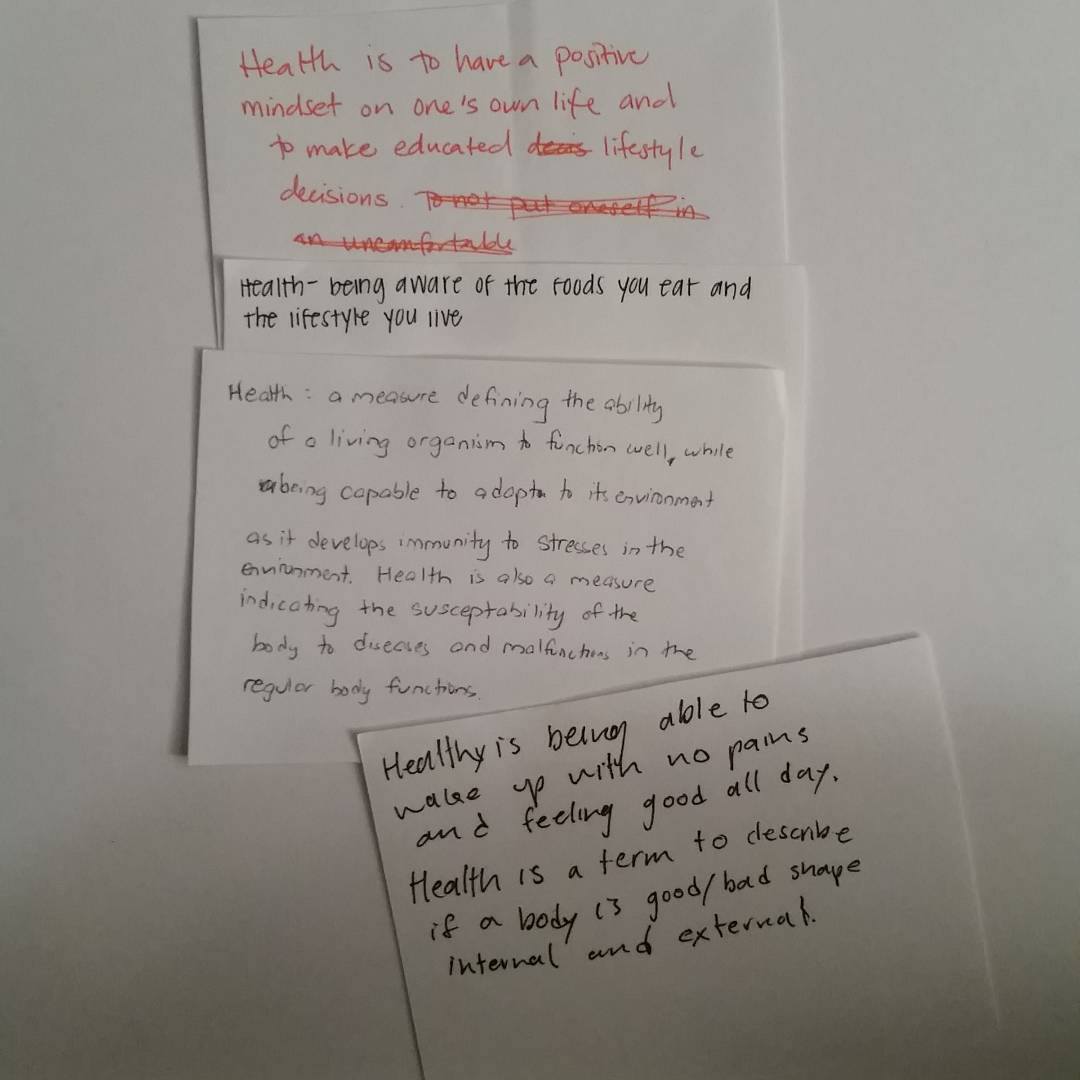 Health is to have a positive
mindset on one's own life and
to make educated decis lifestyle
decisions. To not put oneself in
an uncomfortable
Health- being aware of the foods you eat and
the lifestyle you live
Health: a measure defining the ability
of a living organism to function well, while
being capable to adapt to its environment
as it develops immunity to stresses in the
environment. Health is also a measure
indicating the susceptability of the
body to diseases and malfunctions in the
regular body functions.
Healthy is being able to
wake up with no pains
and feeling good all day.
Health is a term to describe
if a body is good/bad shape
internal and external.